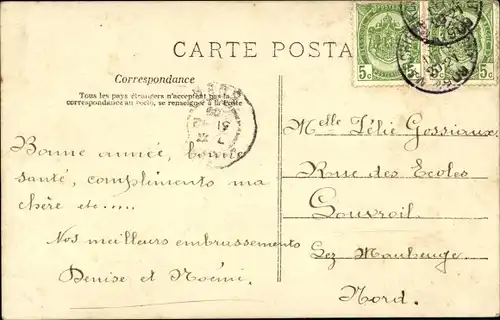 CARTE POSTA
Correspondance
Tous les pays étrangers n'acceptent pas la
correspondance au verso, se renseigner à la poste
5c 5c 5c
Bonne année, bonne
santé, compliments ma
chère etc.....
Nos meilleurs embrassements
Denise et Noémi.
Melle Zélie Gossiaux
Rue des Ecoles
Louvroil
Lez Maubeuge
Nord.